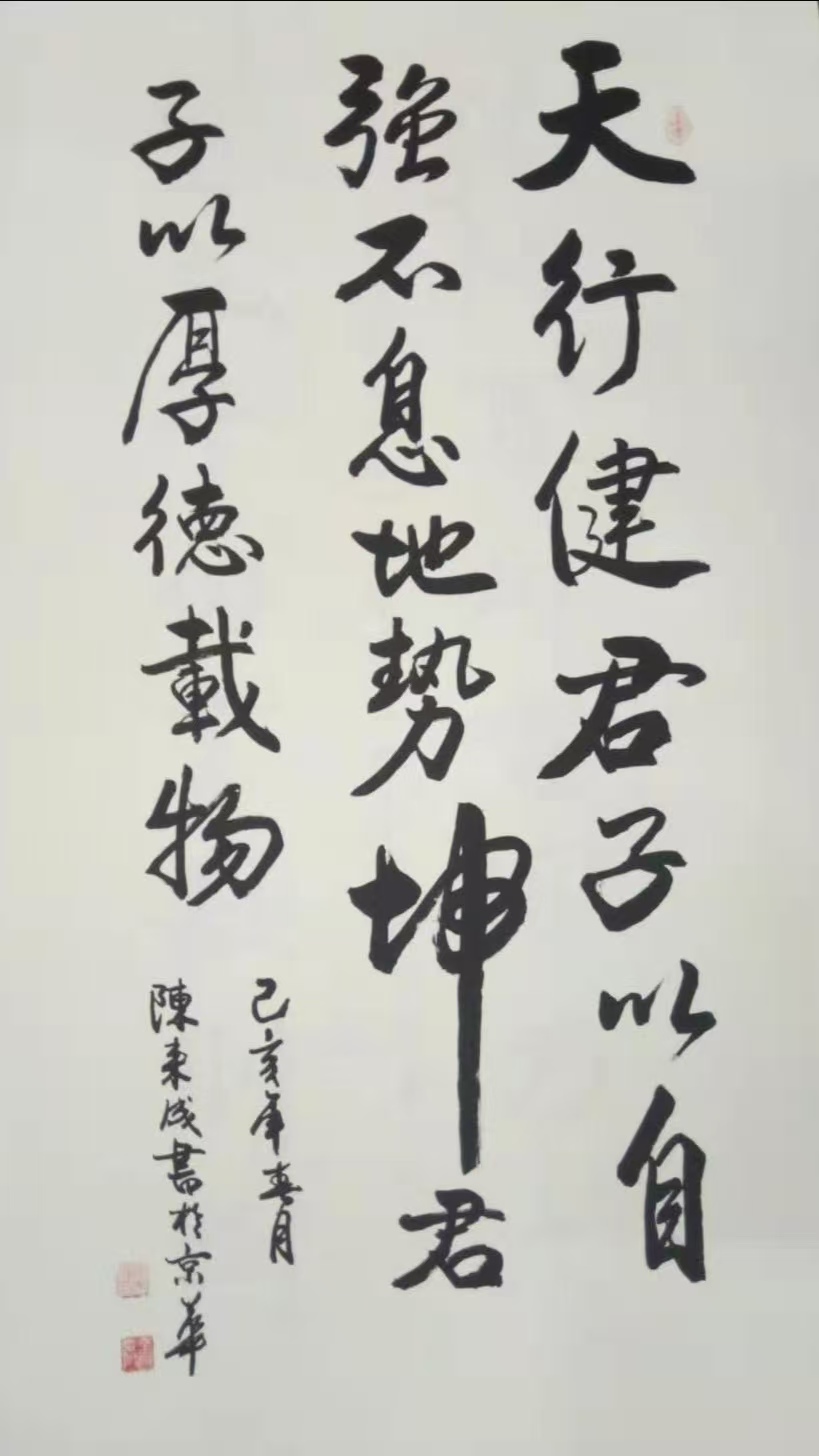 天行健君子以自
強不息地勢坤君
子以厚德載物
己亥年春月
陳東成書於京華